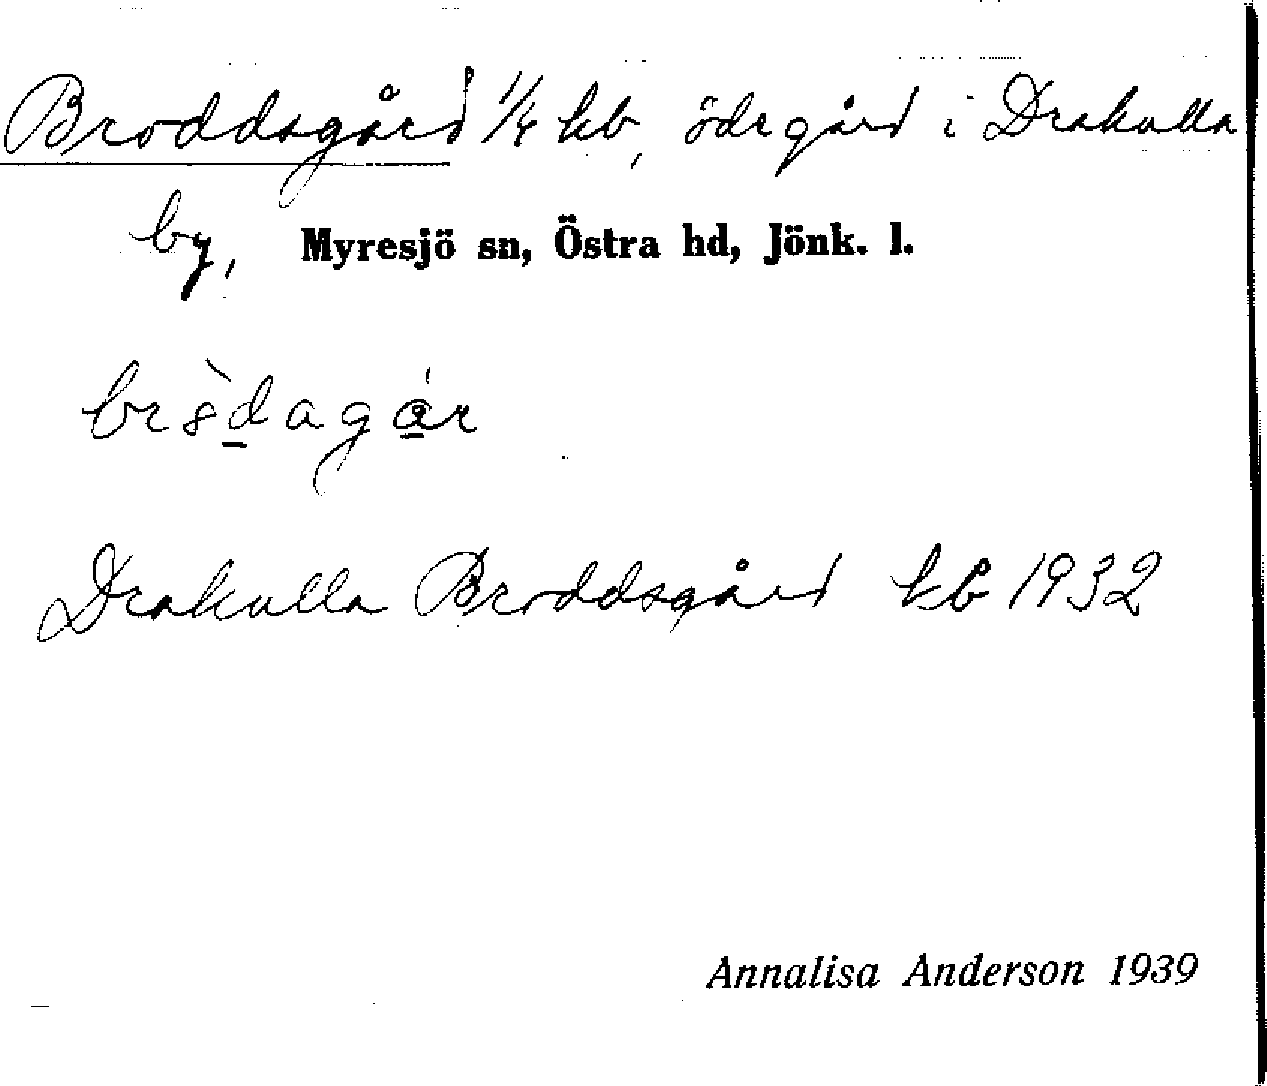 Broddsgård 1/4 kb, ödegård i Drakulla
by, Myresjö sn, Östra hd, Jönk. l.
Drakulla Broddsgård kb 1932
Annalisa Anderson 1939